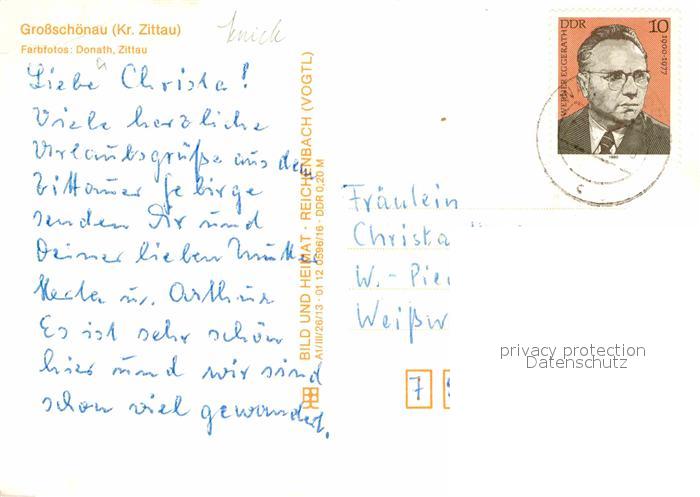 Großschönau (Kr. Zittau)
Farbfotos: Donath, Zittau
knick
Liebe Christa!
Viele herzliche
Urlaubsgrüße aus dem
Zittauer Gebirge
senden Dir und
Deiner lieben Mutter
Herta u. Arthur
Es ist sehr schön
hier und wir sind
schon viel gewandert.
BILD UND HEIMAT · REICHENBACH (VOGTL)
A1/III/26/13 · 01 12 0596/16 · DDR 0,20 M
DDR 10
WERNER EGGERATH
1900-1977
1980
Fräulein
Christa
W.-Pie
Weißw
7
privacy protection
Datenschutz